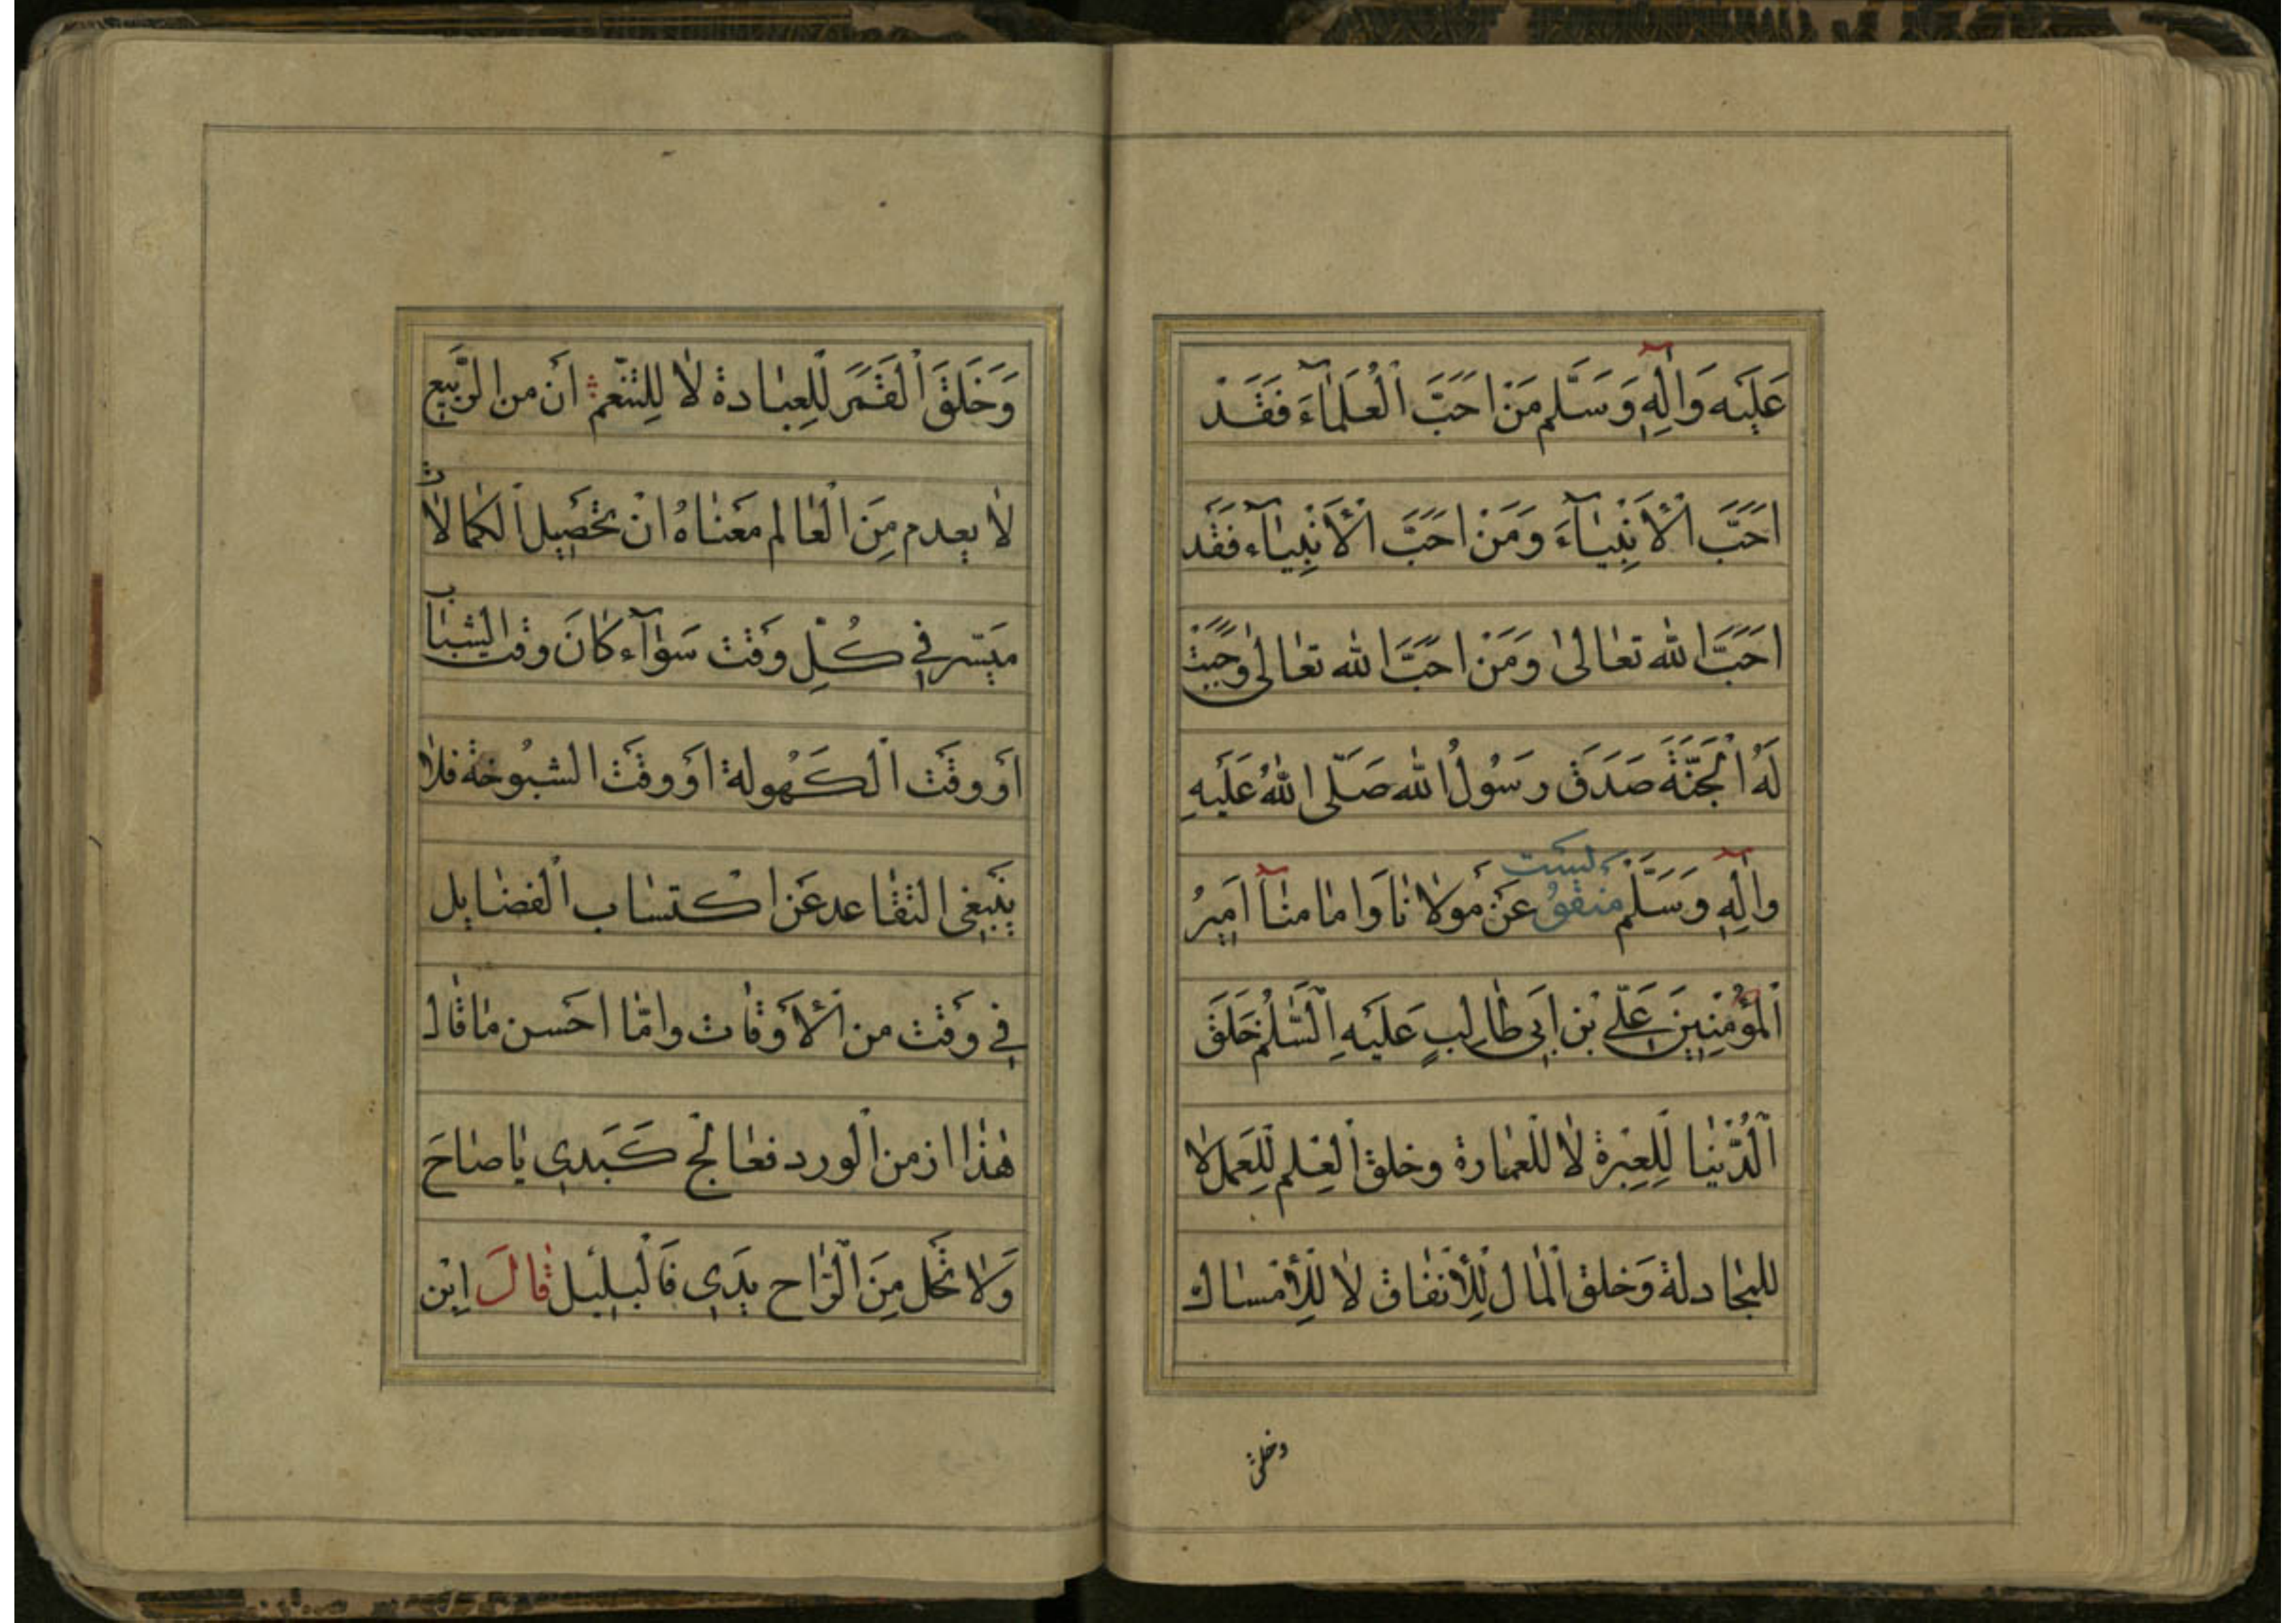 عَلَيْه وَاٰلِهٖ وَسَلَّم مَنْ اَحَبَّ الْعُلَمٰاۤءَ فَقَدْ
اَحَبَّ الْأَنْبِيٰاۤءَ وَمَنْ اَحَبَّ الْأَنْبِيٰاۤء فَقَد
اَحَبَّ الله تعٰالىٰ وَمَنْ اَحَبَّ الله تعٰالىٰ وَجَبَتْ
لَهُ الْجَنَّةَ صَدَقَ رَسُولُ الله صَلّى اللهُ عَلَيْهِ
وَاٰلِهٖ وَسَلَّمْ منقوُ لَيست عَنْ مَوْلاٰنٰا وَامٰامنٰاۤ اَمِيرُ
الْمُؤْمِنِينَ عَلّي بْن اَبى طٰالِبٍ عَلَيْهِ الْسَّلٰمْ خَلَقَ
الْدُّنْيٰا لِلْعِبْرَةِ لاٰ لِلْعمٰارة وخلق الْعِلْم لِلْعَمَل لاٰ
للمجٰادلة وَخلق الْمٰال لِلْأِنفٰاق لاٰ لِلْأِمْسٰاك
وخلق
وَخَلَقَ الْقَمَرَ لِلْعِبٰادة لاٰ لِلتَّنَعّم اَنْ من الرَّبيع
لاٰ يعدم مِنَ الْعٰالم مَعْنٰاهُ انْ تَحْصِيل الْكمٰالاٰت
مَيسّر في كُلِّ وَقْت سَوٰاۤء كٰانَ وقت الشبٰاب
اَو وقْت الْكَهُولة اَوْ وقْت الشيُوخة فلاٰ
يَنْبغي التقٰاعد عَن اكْتسٰاب الْفضٰايل
في وَقْت من الْأَوْقٰات وامّٰا احَسن مٰا قٰال
هٰذا ازمن الْورد فعٰالج كَبَدي يٰا صٰاحَ
وَلاٰ تَخْل مِنَ الْرّٰاح يَدَي فَالْبلبل قٰالَ اِبْن